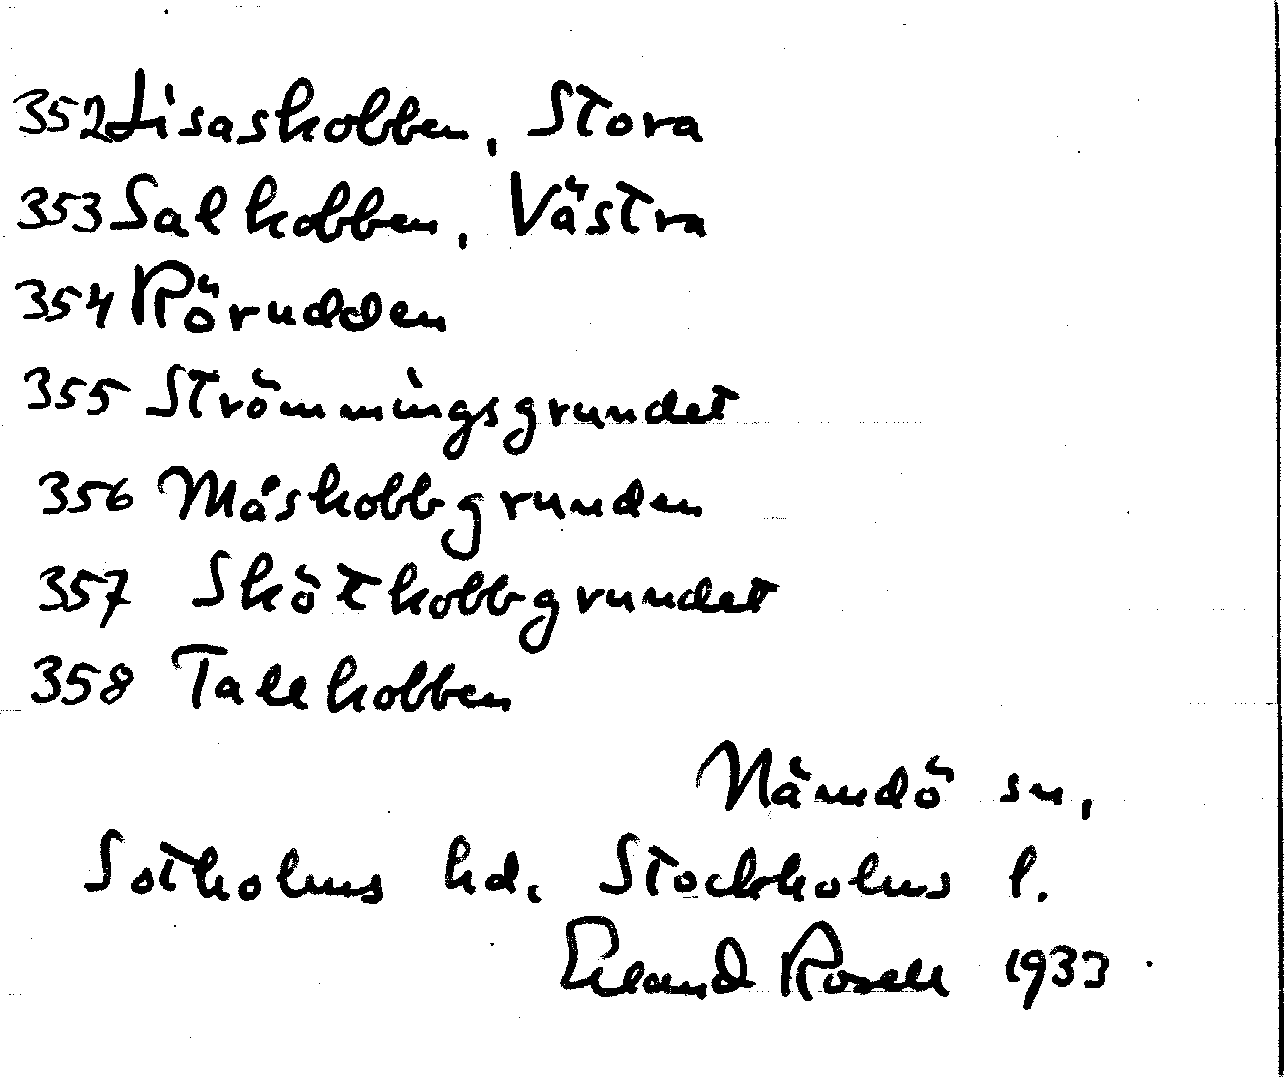 352 Lisaskobben, Stora
353 Salkobben, Västra
354 Rörudden
355 Strömmingsgrundet
356 Måskobbgrunden
357 Skötkobbgrundet
358 Tallkobben
Nämdö sn,
Sotholms hd. Stockholms l.
Erland Rosell 1933